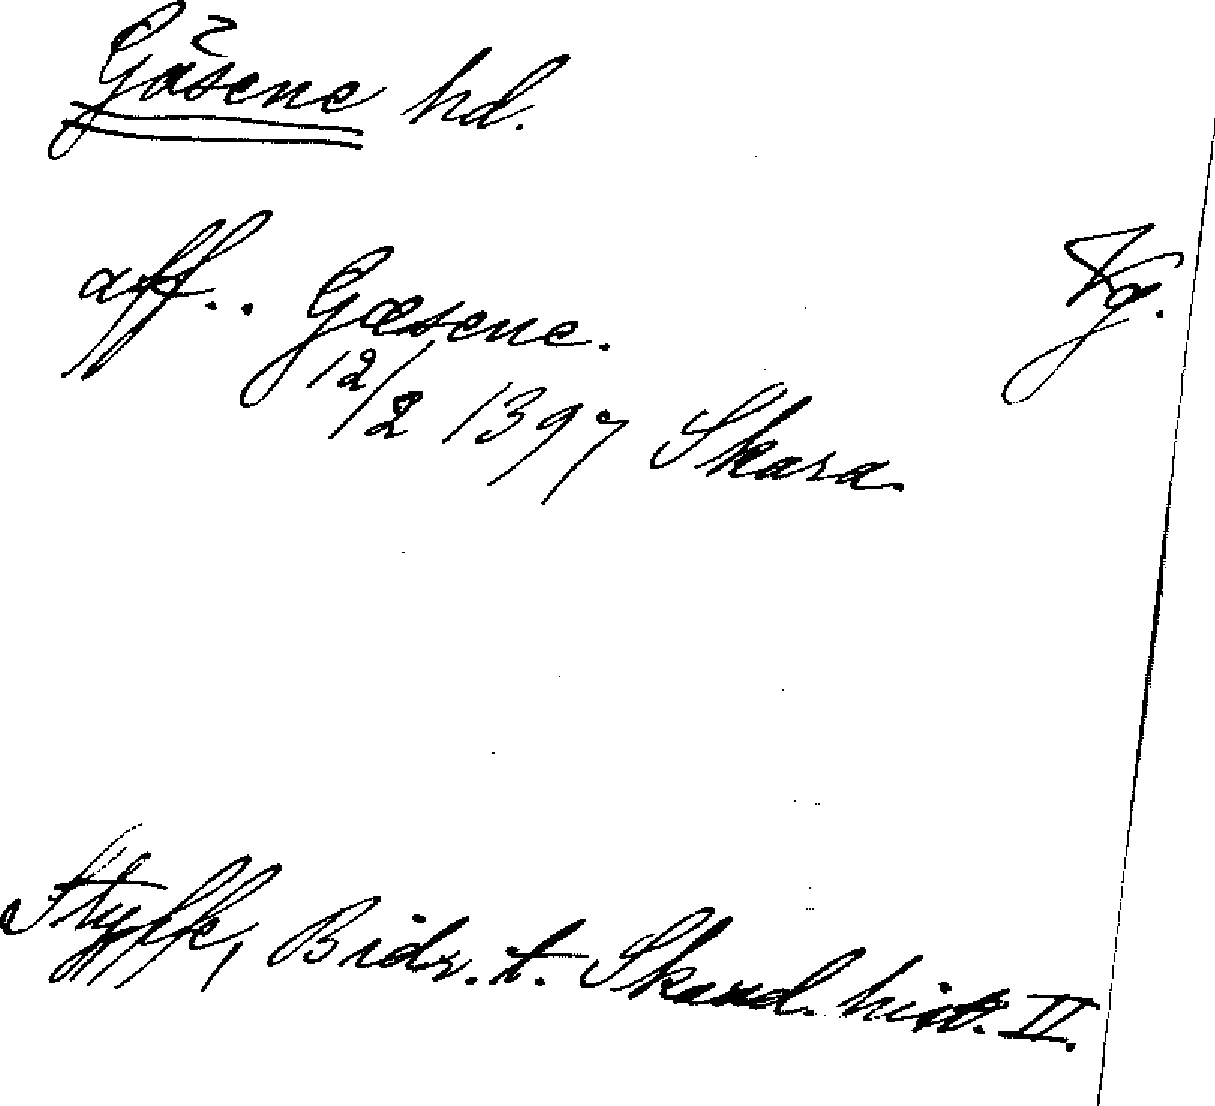 Gäsene hd.
aff.. Gæsene. Vg.
12/2 1397 Skara.
Styffe, Bidr. t. Skand. hist. II.